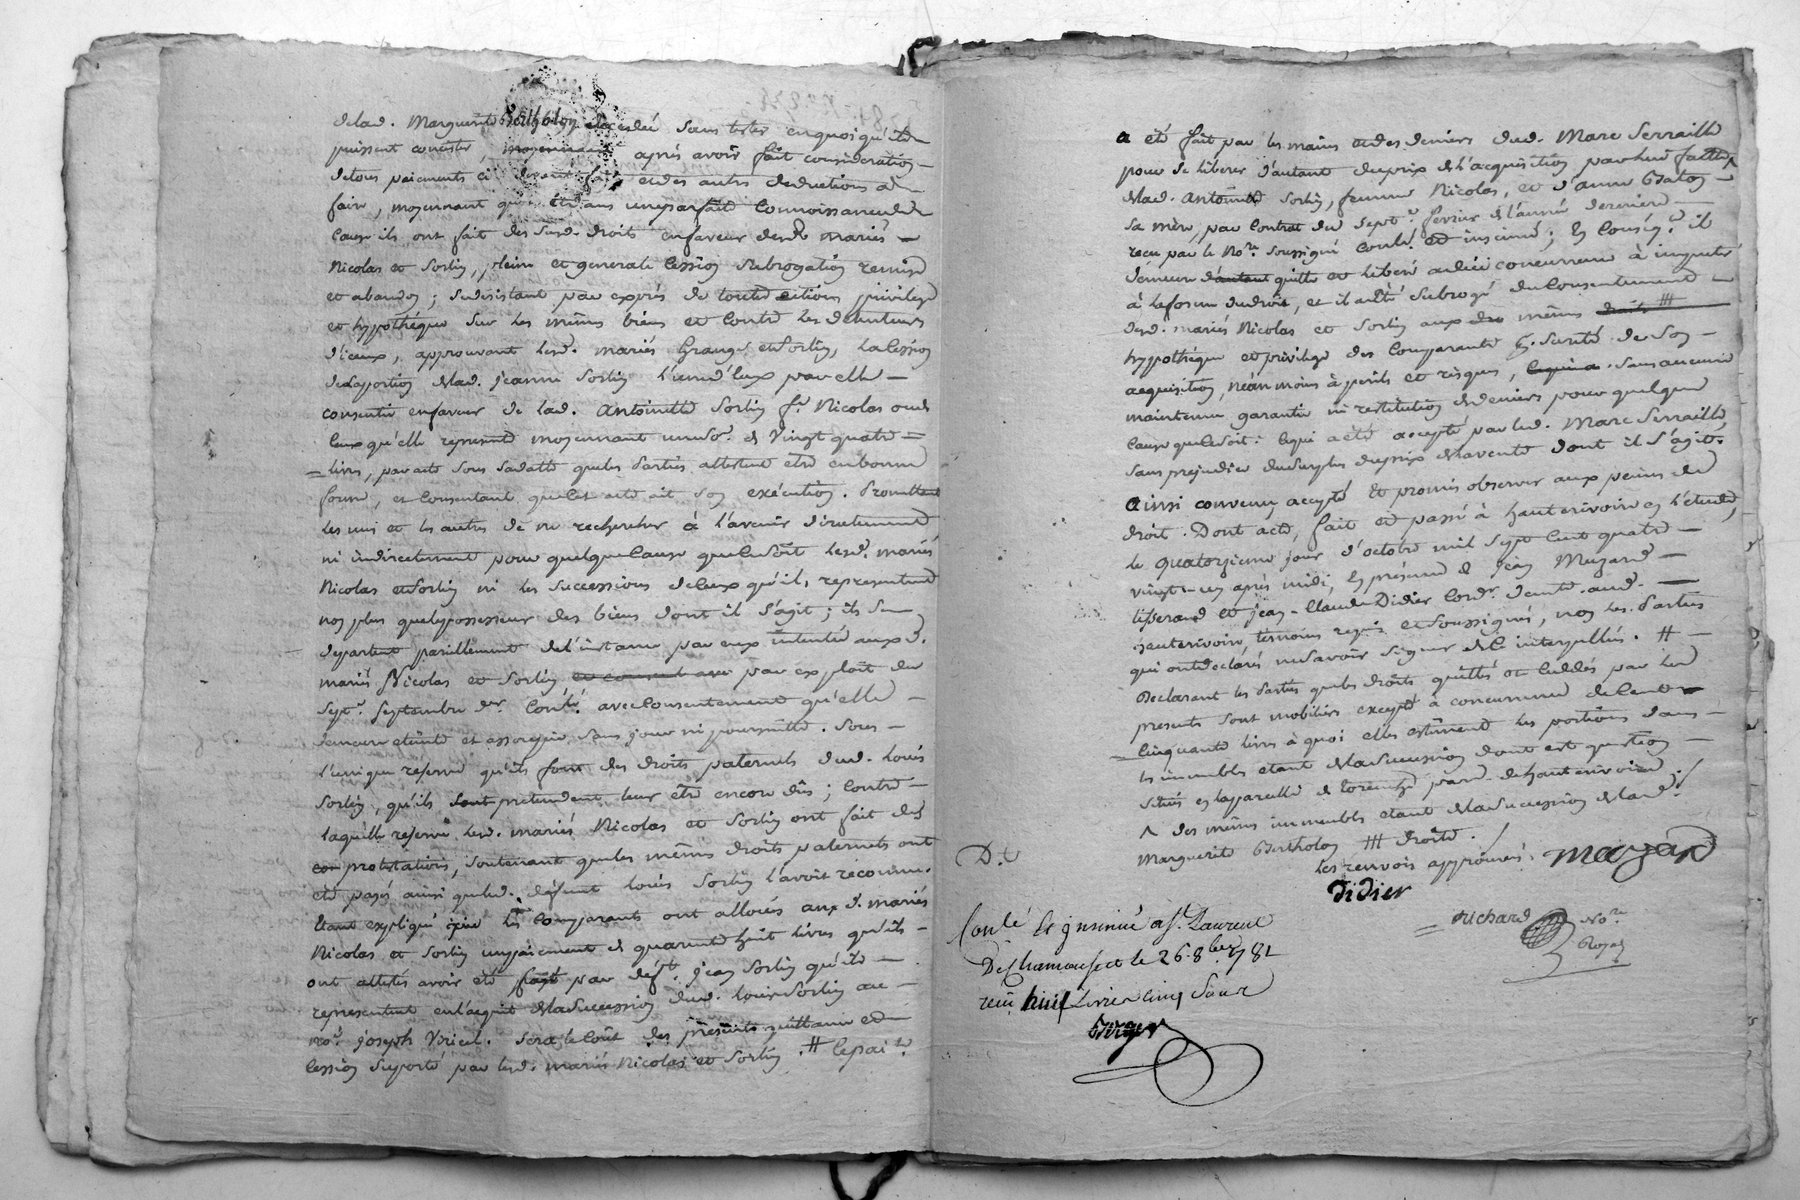 delad. Marguerite Bertholon decedée sans tester en quoi qu'ils
puissent consister, moyennant après avoir fait consideration
detous paiements ci devant faits et des autres deductions à
faire, moyennant quoi étant dans une parfaite connoissance de
cause ils ont fait des susd. droits en faveur desd. mariés
Nicolas et Sorlin, pleine et generale cession subrogation remise
et abandon; se desistant par exprès de toutes actions, privilege
et hypothèque sur les mêmes biens et contre les detenteurs
d'iceux, approuvant lesd. mariés Grange et Sorlin, la cession
de la portion de lad. jeanne Sorlin l'une d'eux par elle
consentie en faveur de lad. Antoinette Sorlin fe. Nicolas ou de
ceux qu'elle represente moyennant une so.e de vingt quatre
livres, par acte sous sa datte que les Parties attestent être en bonne
forme, et consentant que cet acte ait son exécution. Promettant
les uns et les autres de ne rechercher à l'avenir directement
ni indirectement pour quelque cause que ce soit lesd. mariés
Nicolas et Sorlin ni les successions de ceux qu'ils representent
non plus que les possesseurs des biens dont il s'agit; ils se
departent pareillement de l'instance par eux intentée auxd.
mariés Nicolas et Sorlin par exploit du
sept.e septembre d.er Conlé. avec consentement qu'elle
demeure éteinte et assoupie sans jour ni poursuitte. Sous
l'unique reserve qu'ils font des droits paternels dud. Louis
Sorlin, qu'ils pretendent leur être encore dûs; contre
laquelle reserve lesd. mariés Nicolas et Sorlin ont fait des
protestations, soutenant que les mêmes droits paternels ont
été payés ainsi que led. défunt Louis Sorlin l'avoit reconnu.
Etant expliqué que les comparants ont alloués auxd. mariés
Nicolas et Sorlin un paiement de quarante huit livres qu'ils
ont attestés avoir été fait par déft. jean Sorlin qu'ils
representent en l'acquit de la succession dud. Louis Sorlin au
no.e joseph Vriel. Sera le coût des presentes quittance et
cession suporté par lesd. mariés Nicolas et Sorlin. # le pai.t
a été fait par les mains et des deniers dud. Marc Serraille
pour se liberer d'autant du prix de l'acquisition par lui faitte
de lad. Antoinette Sorlin, femme Nicolas, et d'anne Batoy
sa mère, par contrat du sept.e fevrier de l'année derniere
reçu par le No.re soussigné conlé. et insinué; En conseq.e il
demeure quitte et liberé à due concurrence à imputer
à la forme du droit, et il a été subrogé du consentement
desd. mariés Nicolas et Sorlin aux mêmes droits #
hypothèque et privilege des comparants p.r sureté de son
acquisition, néanmoins à perils et risques, sans aucune
maintenue garantie ni restitution de deniers pour quelque
cause que ce soit: ce qui a été accepté par led. Marc Serraille,
sans prejudice du surplus du prix de la vente dont il s'agit.
Ainsi convenu accepté et promis observer aux peines de
droit. Dont acte, fait et passé à hauterivoire en l'étude,
le quatorzieme jour d'octobre mil sept cent quatre
vingt-un après midi, En présence de jean Mazard
tisserand et jean-Claude Didier cord.r demt. aud.
hauterivoire, temoins requis et soussignés, non les Parties
qui ont declarés ne savoir signer de ce interpellés. #
Declarant les Parties que les droits quittés et cedés par les
presentes sont mobiliers excepté à concurrence de cent
cinquante livres à quoi elles estiment les portions dans
les immeubles etant de la succession dont est question
situés en la parcelle de par. de hauterivoire.
^ des mêmes immeubles etant de la succession de lad.
Marguerite Bertholon # droits.
Les renvois approuvés. mazard
didier
Richard No.re
Royal
D.t
Conlé et jnsinué a St. Laurent
De Chamousset le 26. 8bre 1781
reçu huit Livres cinq Sous
Berger